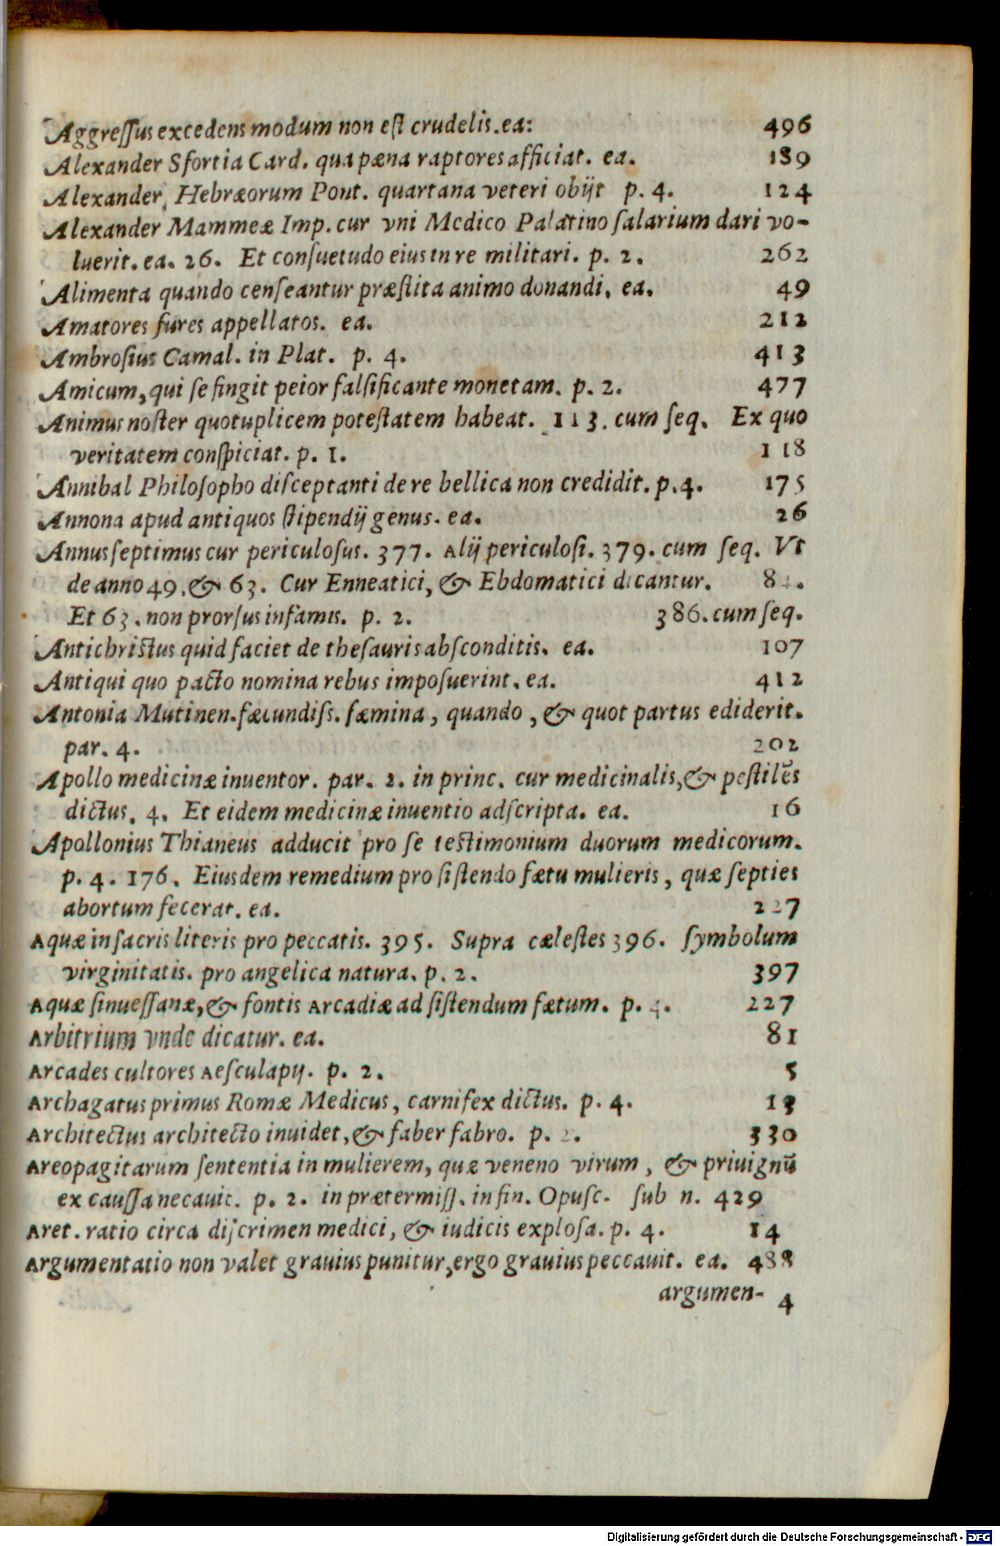 Aggreſſus excedens modum non eſt crudelis. ea: 496
Alexander Sfortia Card. qua pæna raptores afficiat. ea. 189
Alexander Hebræorum Pont. quartana veteri obijt p. 4. 124
Alexander Mammeæ Imp. cur vni Medico Palatino ſalarium dari vo-
luerit. ea. 26. Et conſuetudo eius in re militari. p. 2. 262
Alimenta quando cenſeantur præſtita animo donandi. ea. 49
Amatores fures appellatos. ea. 212
Ambroſius Camal. in Plat. p. 4. 413
Amicum, qui ſe fingit peior falſificante monetam. p. 2. 477
Animus noſter quotuplicem poteſtatem habeat. 113. cum ſeq. Ex quo
veritatem conſpiciat. p. 1. 118
Annibal Philoſopho diſceptanti de re bellica non credidit. p. 4. 175
Annona apud antiquos ſtipendij genus. ea. 26
Annus ſeptimus cur periculoſus. 377. Alij periculoſi. 379. cum ſeq. Vt
de anno 49. & 63. Cur Enneatici, & Ebdomatici dicantur.
Et 63. non prorſus infamis. p. 2. 386. cum ſeq.
Antichriſtus quid faciet de theſauris abſconditis. ea. 107
Antiqui quo pacto nomina rebus impoſuerint. ea. 412
Antonia Mutinen. fæcundiſs. fæmina, quando, & quot partus ediderit.
par. 4. 202
Apollo medicinæ inuentor. par. 2. in princ. cur medicinalis, & peſtilẽs
dictus. 4. Et eidem medicinæ inuentio adſcripta. ea. 16
Apollonius Thianeus adducit pro ſe teſtimonium duorum medicorum.
p. 4. 176. Eiusdem remedium pro ſiſtendo fætu mulieris, quæ ſepties
abortum fecerat. ea. 227
Aquæ in ſacris literis pro peccatis. 395. Supra cæleſtes 396. ſymbolum
virginitatis. pro angelica natura. p. 2. 397
Aquæ ſinueſſanæ, & fontis Arcadiæ ad ſiſtendum fætum. p. 4. 227
Arbitrium vnde dicatur. ea. 81
Arcades cultores Aeſculapij. p. 2. 5
Archagatus primus Romæ Medicus, carnifex dictus. p. 4.
Architectus architecto inuidet, & faber fabro. p. 2. 330
Areopagitarum ſententia in mulierem, quæ veneno virum, & priuignũ
ex cauſſa necauit. p. 2. in prætermiſſ. in fin. Opuſc. ſub n. 429
Aret. ratio circa diſcrimen medici, & iudicis exploſa. p. 4. 14
Argumentatio non valet grauius punitur, ergo grauius peccauit. ea. 488
argumen- 4
Digitalisierung gefördert durch die Deutsche Forschungsgemeinschaft - DFG